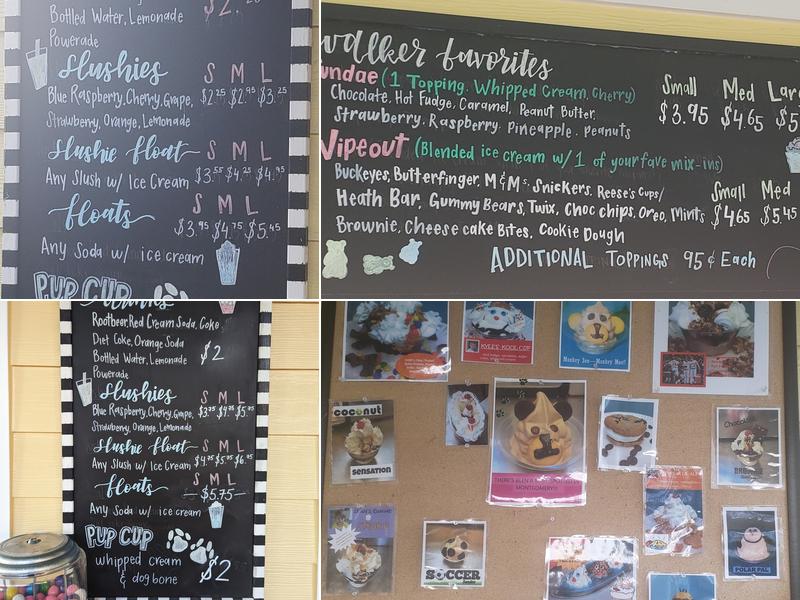 $2.25
Bottled Water, Lemonade
Powerade
Slushies S M L
Blue Raspberry, Cherry, Grape, $2.25 $2.95 $3.25
Strawberry, Orange, Lemonade
Slushie float S M L
Any Slush w/ Ice Cream $3.55 $4.25 $4.95
floats S M L
$3.95 $4.75 $5.45
Any Soda w/ ice cream
PUP CUP
walker favorites
undae (1 Topping, Whipped Cream, Cherry) Small Med Lar
Chocolate, Hot Fudge, Caramel, Peanut Butter, $3.95 $4.65 $5
Strawberry, Raspberry, Pineapple, Peanuts
Wipeout (Blended ice cream w/ 1 of your fave mix-ins)
Buckeyes, Butterfinger, M&M's, Snickers, Reese's Cups/ Small Med
Heath Bar, Gummy Bears, Twix, Choc chips, Oreo, Mints $4.65 $5.45
Brownie, Cheesecake Bites, Cookie Dough
ADDITIONAL TOPPINGS 95¢ Each
Rootbeer, Red Cream Soda, Coke
Diet Coke, Orange Soda
Bottled Water, Lemonade $2
Powerade
Slushies S M L
Blue Raspberry, Cherry, Grape,
Strawberry, Orange, Lemonade
Slushie float S M L
Any Slush w/ Ice Cream $4.75 $5.95 $6.95
floats S M L
$5.75
Any Soda w/ ice cream
PUP CUP
whipped cream
& dog bone $2
KYLE'S KOOL CUP
Monkey See-Monkey Moo!
coconut
SENSATION
THERE'S BEEN A
MONTGOMERY!!!
Chocolate
SOCCER
POLAR PAL